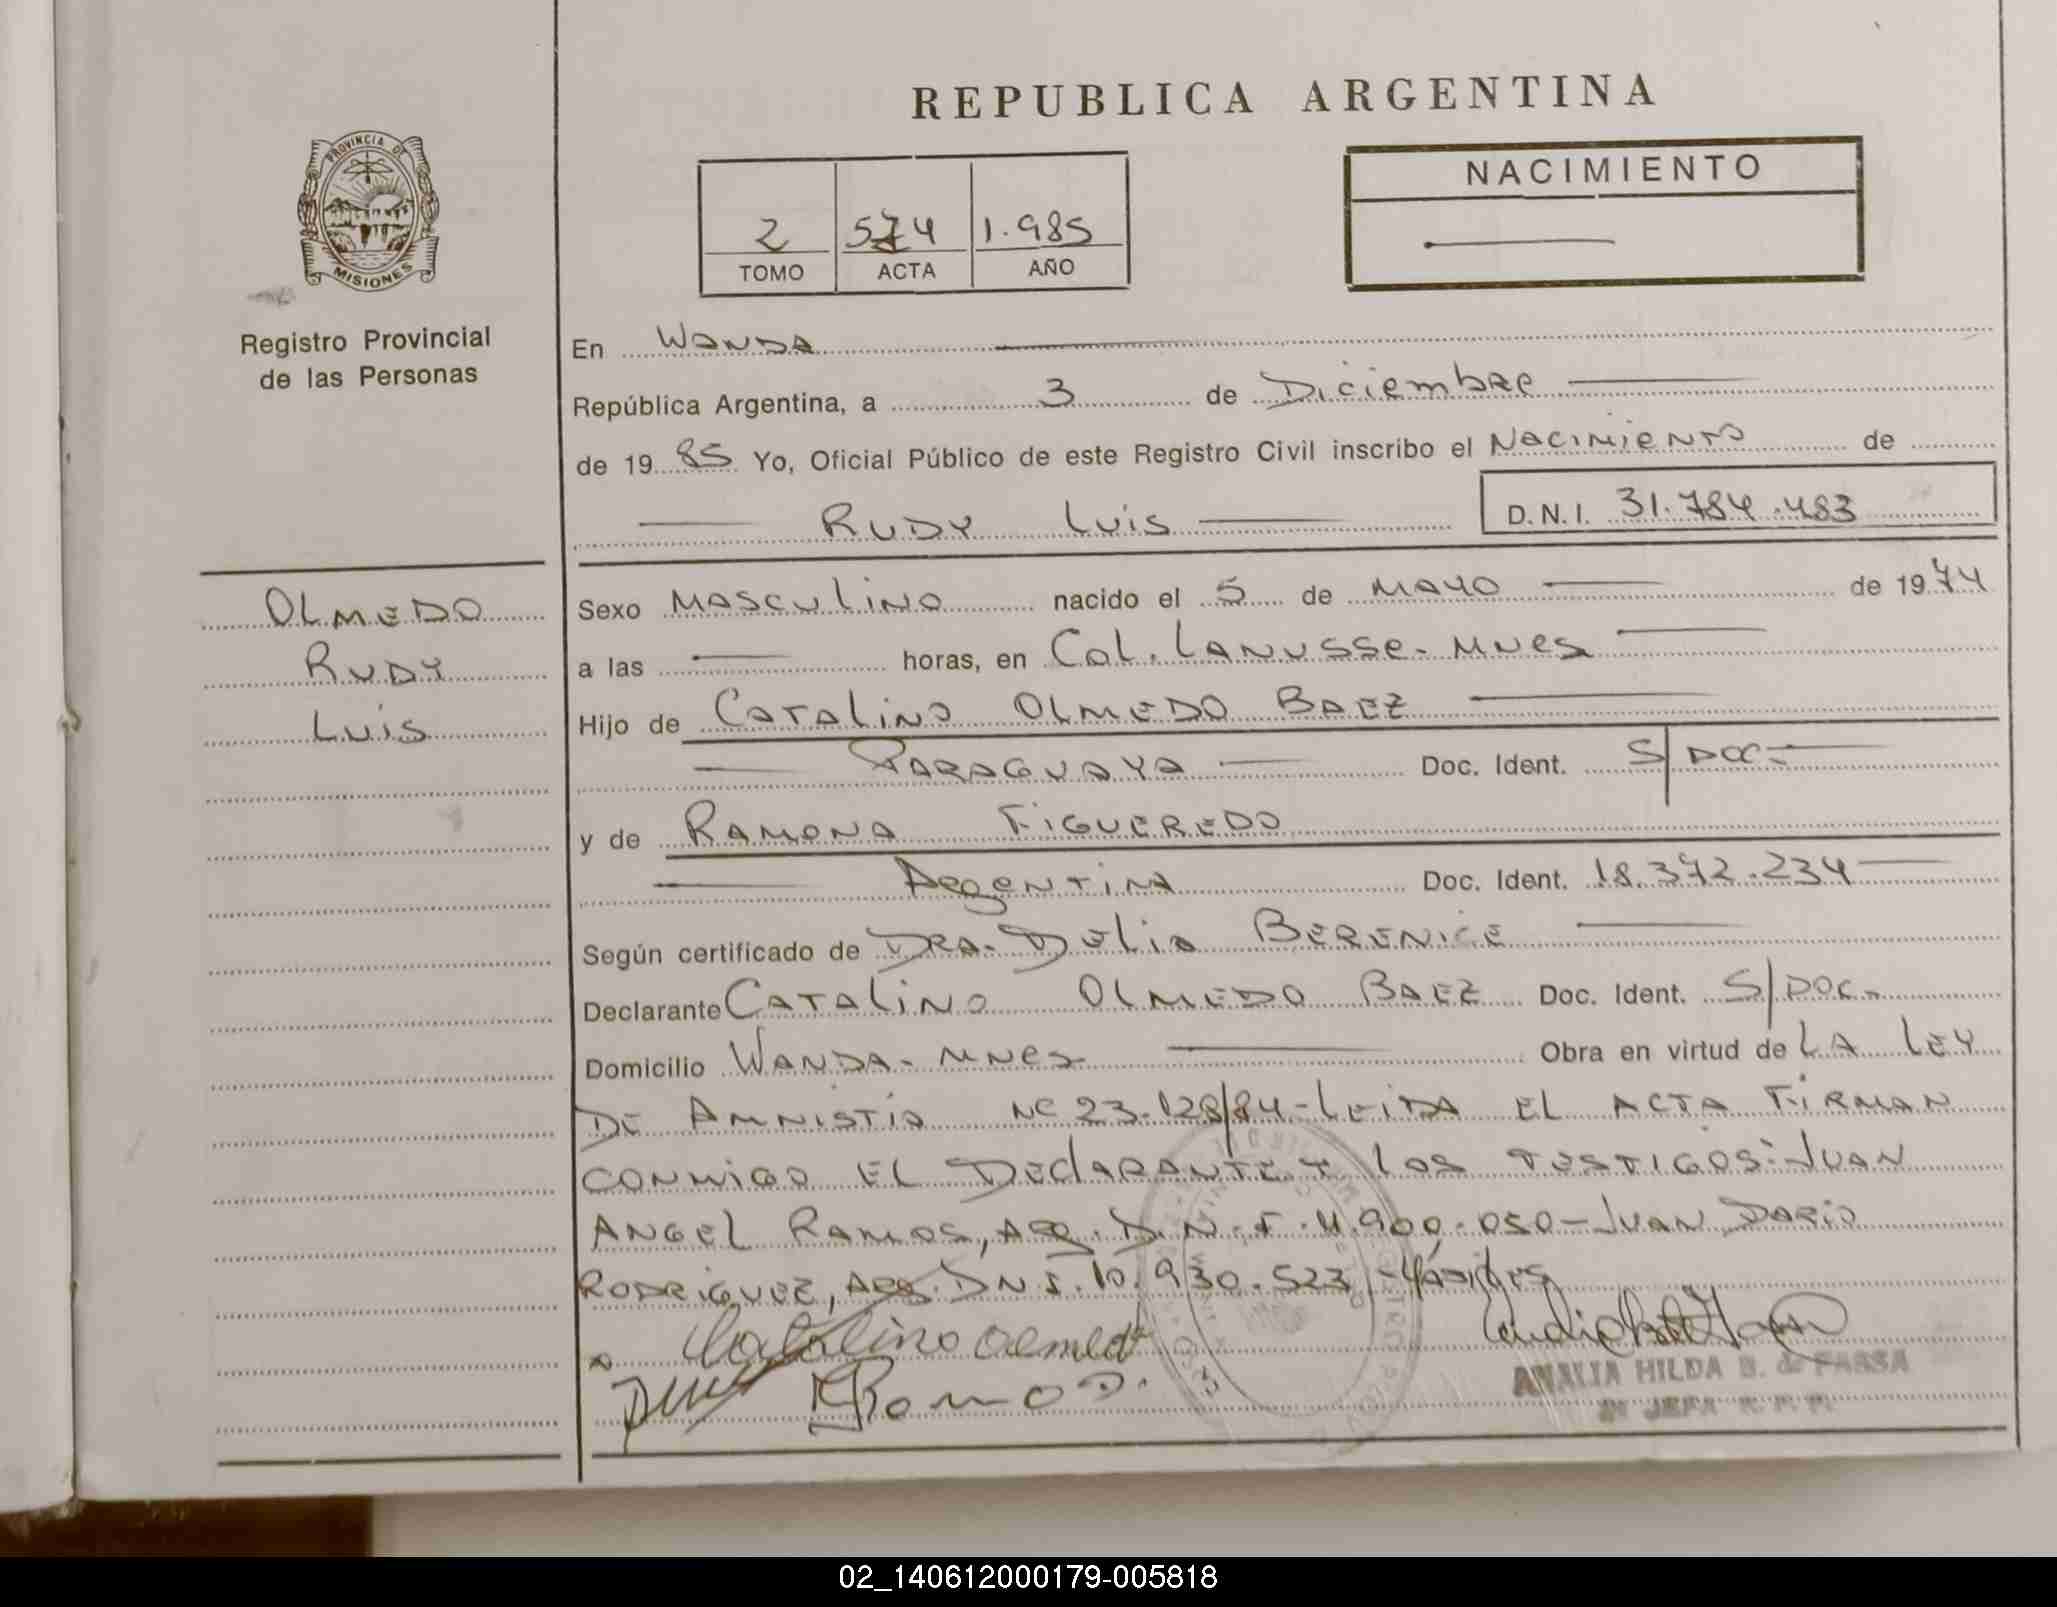 REPUBLICA ARGENTINA
PROVINCIA DE
MISIONES
Registro Provincial
de las Personas
2 574 1.985
TOMO ACTA AÑO
NACIMIENTO
En WANDA
República Argentina, a 3 de Diciembre
de 1985 Yo, Oficial Público de este Registro Civil inscribo el Nacimiento de
RUDY LUIS D.N.I. 31.784.483
OLMEDO
RUDY
LUIS
Sexo MASCULINO nacido el 5 de MAYO de 1974
a las horas, en Col. LANUSSE- MNES
Hijo de CATALINO OLMEDO BAEZ
PARAGUAYA Doc. Ident. S/DOC-
y de RAMONA FIGUEREDO
ARGENTINA Doc. Ident. 18.372.234
Según certificado de DRA. DELIA BERENICE
Declarante CATALINO OLMEDO BAEZ Doc. Ident. S/DOC.
Domicilio WANDA- MNES Obra en virtud de LA LEY
DE AMNISTIA Nº 23.128/84-LEIDA EL ACTA FIRMAN
CONMIGO EL DECLARANTE Y LOS TESTIGOS: JUAN
ANGEL RAMOS, ARG. D.N.I. 11.900.050-JUAN DARIO
RODRIGUEZ, ARG. DNI. 10.930.523
Catalino Olmedo
Ramos
ANALIA HILDA B. de FASSA
JEFA R. P. P.
02_140612000179-005818